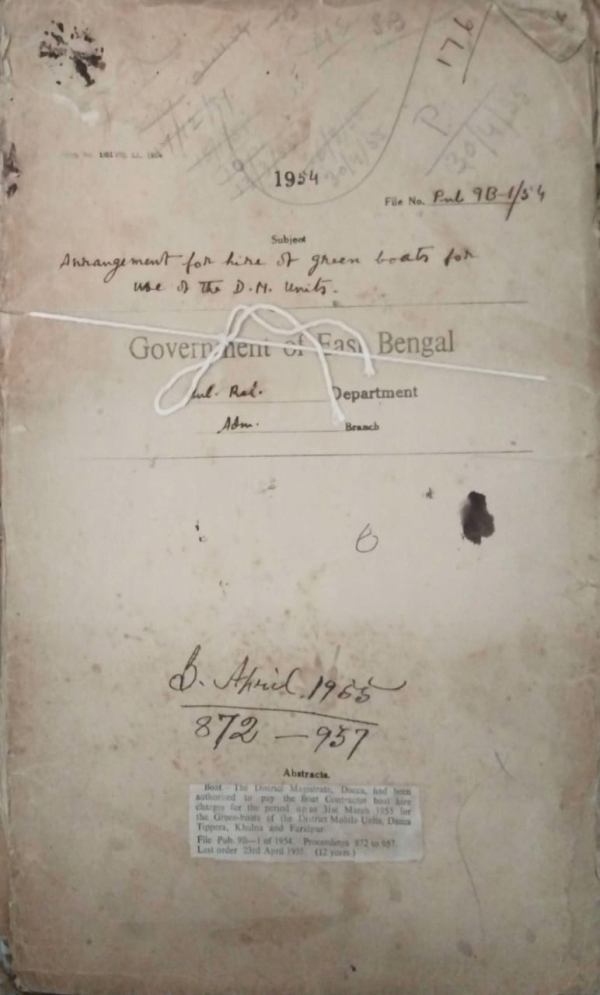 P. 176
30/4/55
17/12/51
30/4/55
1954
File No. Pub 9B-1/54
Subject
Arrangement for hire of green boats for
use of the D.M. Units.
Government of East Bengal
Pul. Rel. Department
Adm. Branch
B. April 1955
872 — 957
Abstracts.
Boat—The District Magistrate, Dacca, had been
authorised to pay the Boat Contractor boat hire
charges for the period upto 31st March 1955 for
the Green-boats of the District Mobile Units, Dacca
Tippera, Khulna and Faridpur.
File Pub. 9B—1 of 1954. Proceedings 872 to 957.
Last order 23rd April 1955. (12 years)